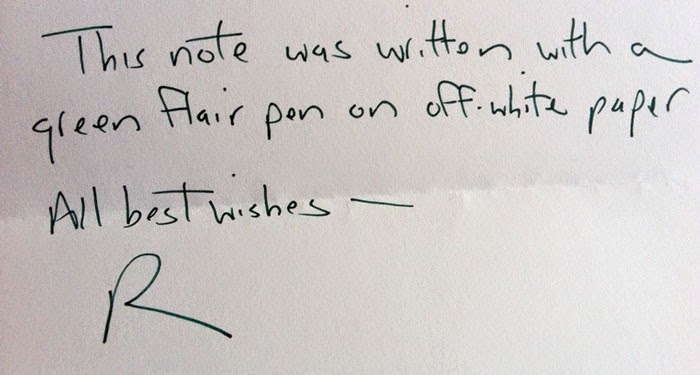 This note was written with a
green flair pen on off-white paper
All best wishes —
R